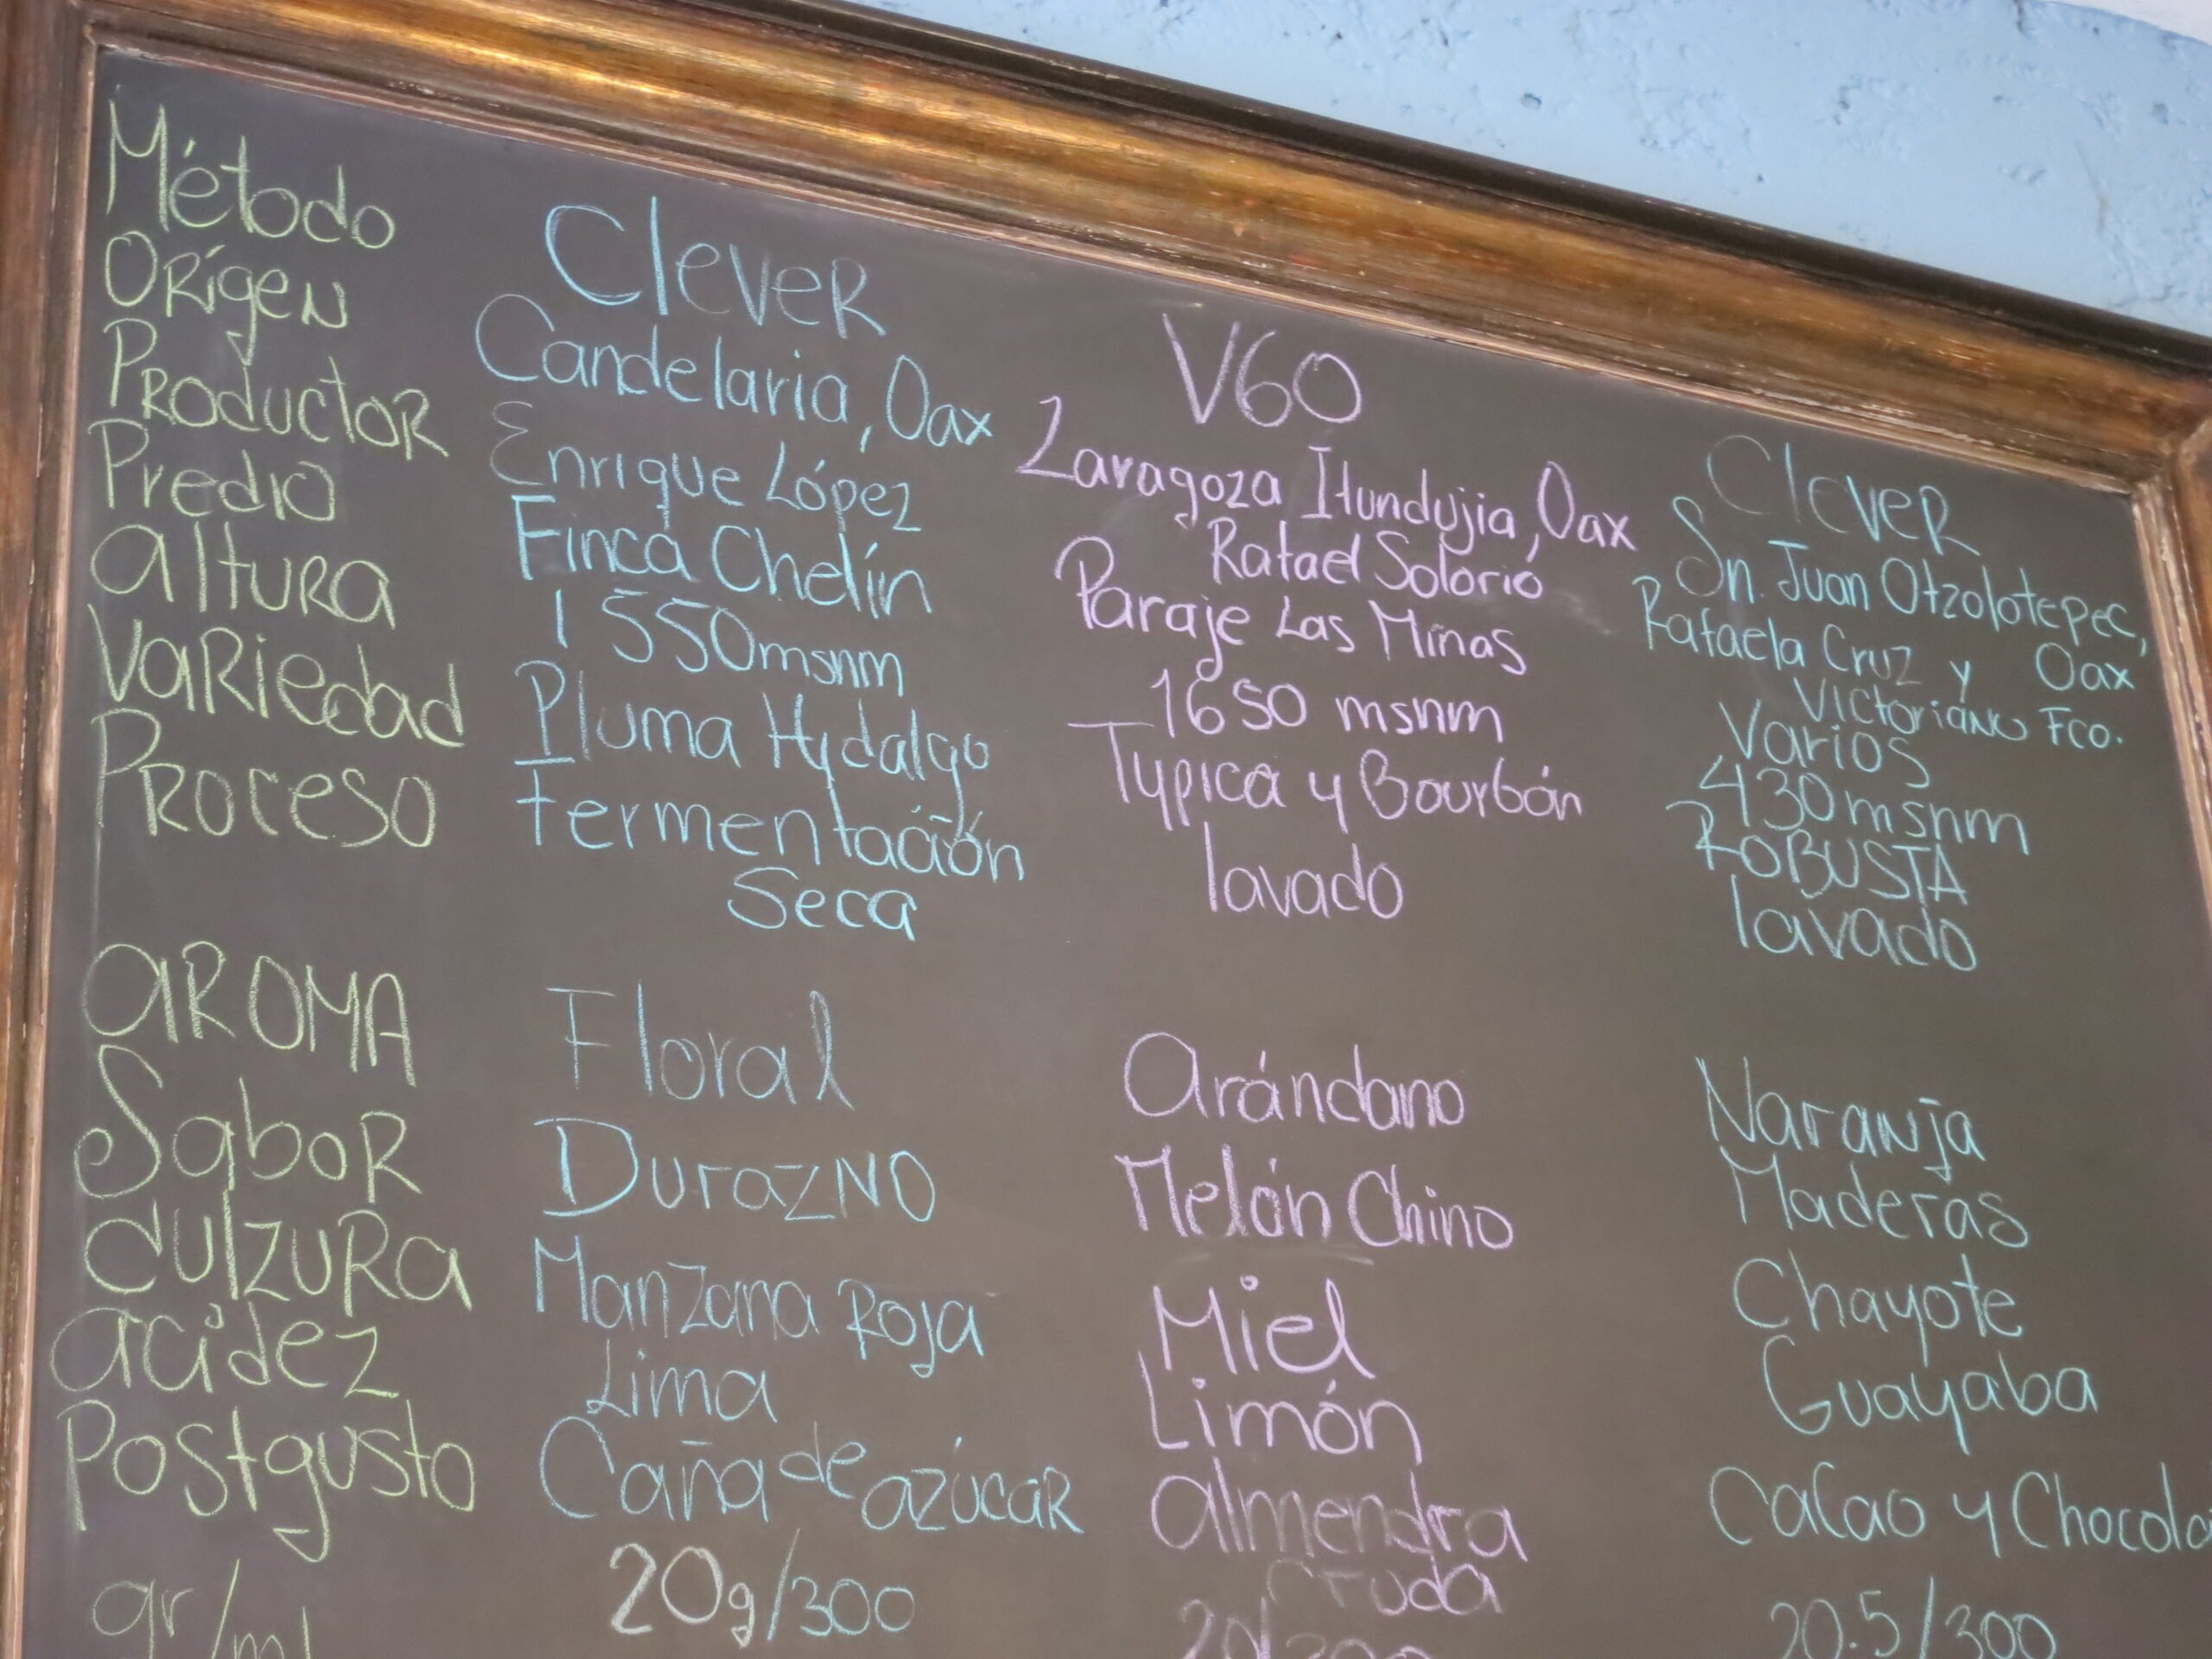 Método
Orígen
Productor
Predio
altura
Variedad
Proceso
aroma
Sabor
dulzura
acidez
Postgusto
gr/ml
Clever
Candelaria, Oax
Enrique López
Finca Chelín
1550msnm
Pluma Hydalgo
Fermentación
Seca
Floral
Durazno
Manzana Roja
Lima
Caña de azúcar
20g/300
V60
Zaragoza Itundujia, Oax
Rafael Solorio
Paraje Las Minas
1650 msnm
Typica y Bourbón
lavado
Arándano
Melón Chino
Miel
Limón
almendra
cruda
20/300
Clever
Sn. Juan Otzolotepec,
Oax
Rafaela Cruz y
Victoriano Fco.
Varios
430msnm
ROBUSTA
lavado
Naranja
Maderas
Chayote
Guayaba
Cacao y Chocola
20.5/300